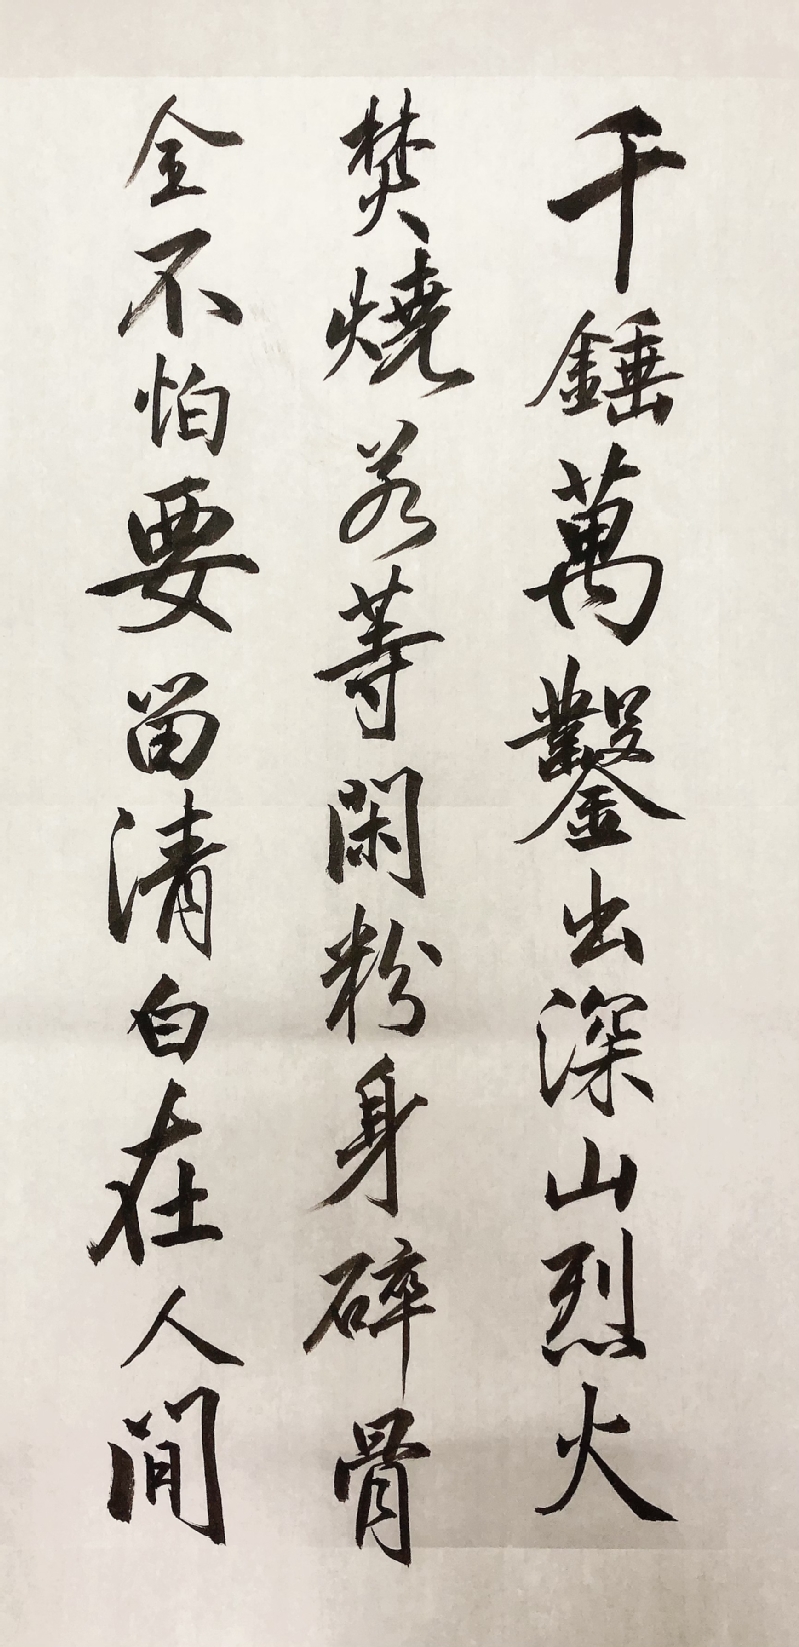 千錘萬鑿出深山烈火
焚燒若等閑粉身碎骨
全不怕要留清白在人間